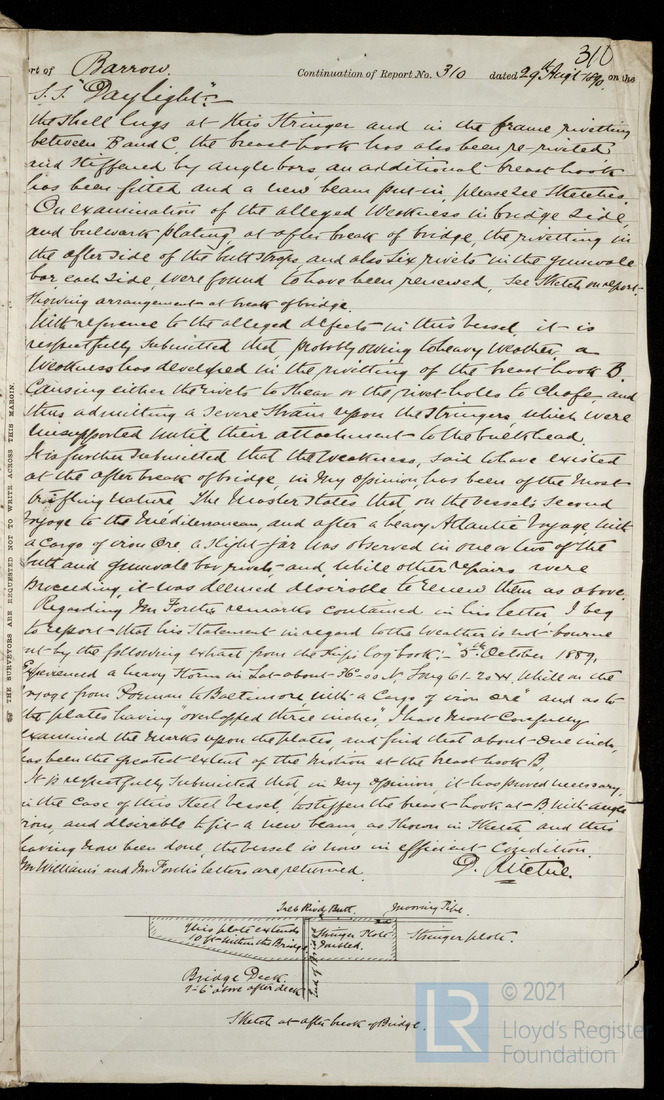 310
rt of Barrow. Continuation of Report No. 310 dated 29th Augt 1890, on the
S.S. "Daylight"
the shell lugs at this Stringer and in the frame rivetting
between B and C, the breast hook has also been re-riveted
and stiffened by angle bars, an additional breast hook
has been fitted and a new beam put in, please see Sketches.
On examination of the alleged Weakness in bridge Side,
and bulwark plating, at after break of bridge, the rivetting in
the after side of the butt straps, and also six rivets in the gunwale
bar each side, were found to have been renewed, See Sketch on report
showing arrangement at break of bridge.
With reference to the alleged defects in this vessel, it is
respectfully submitted that, probably owing to heavy weather, a
Weakness has developed in the rivetting of the breast hook B.
Causing either the rivets to shear or the rivet holes to chafe, and
thus admitting a severe strain upon the stringers which were
unsupported until their attachment to the bulkhead.
It is further submitted that the weakness, said to have existed
at the after break of bridge, in my opinion, has been of the most
trifling nature. The Master states that on the vessel's second
voyage to the Mediteranean, and after a heavy Atlantic Voyage, with
a cargo of iron Ore, a slight jar was observed in one or two of the
butt and gunwale bar rivets and while other repairs were
proceeding, it was deemed desirable to renew them as above.
Regarding Mr remarks contained in his letter, I beg
to report that his statement in regard to the weather is not bourne
out by the following extract from the ship's log book: "5th October 1889,
Experienced a heavy storm in Lat about 36°.00 N. Long 61.20 W. While on the
voyage from to Baltimore with a Cargo of iron ore" and as to
the plates having "overlapped three inches", I have most carefully
examined the marks upon the plates, and find that about one inch,
has been the greatest extent of the motion at the breast hook B.
It is respectfully submitted that, in my opinion, it has proved necessary,
in the case of this Steel Vessel, to stiffen the breast hook at B. with angle
irons, and desirable to fit a new beam, as shown in sketch, and this
having now been done, the vessel is now in efficient condition.
Mr Williams and Mr letters are returned. D. Ritchie.
Treb Rivd Butt. Mooring Pipe.
This plate extends
10 ft within the Bridge
Stringer Plate
doubled.
Stringer plate.
End of Bridge
Bridge Deck.
7'-6" above after deck
Sketch at after break of Bridge.
IF THE SURVEYORS ARE REQUESTED NOT TO WRITE ACROSS THIS MARGIN.
LR © 2021
Lloyd's Register
Foundation